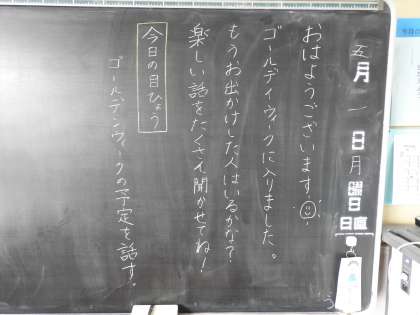 五月一日月曜日
日直
おはようございます。
ゴールデイウィークに入りました。
もうお出かけした人はいるかな？
楽しい話をたくさん聞かせてね！
今日の目ひょう
ゴールデンウィークの予定を話す。